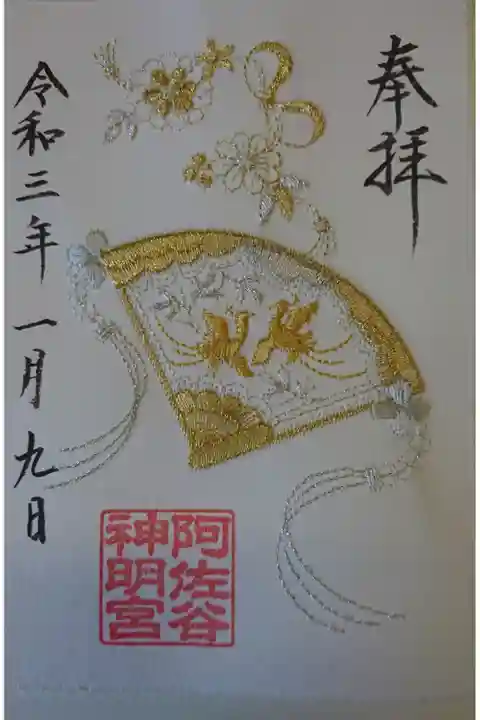 奉拝
阿佐谷
神明宮
令和三年一月九日